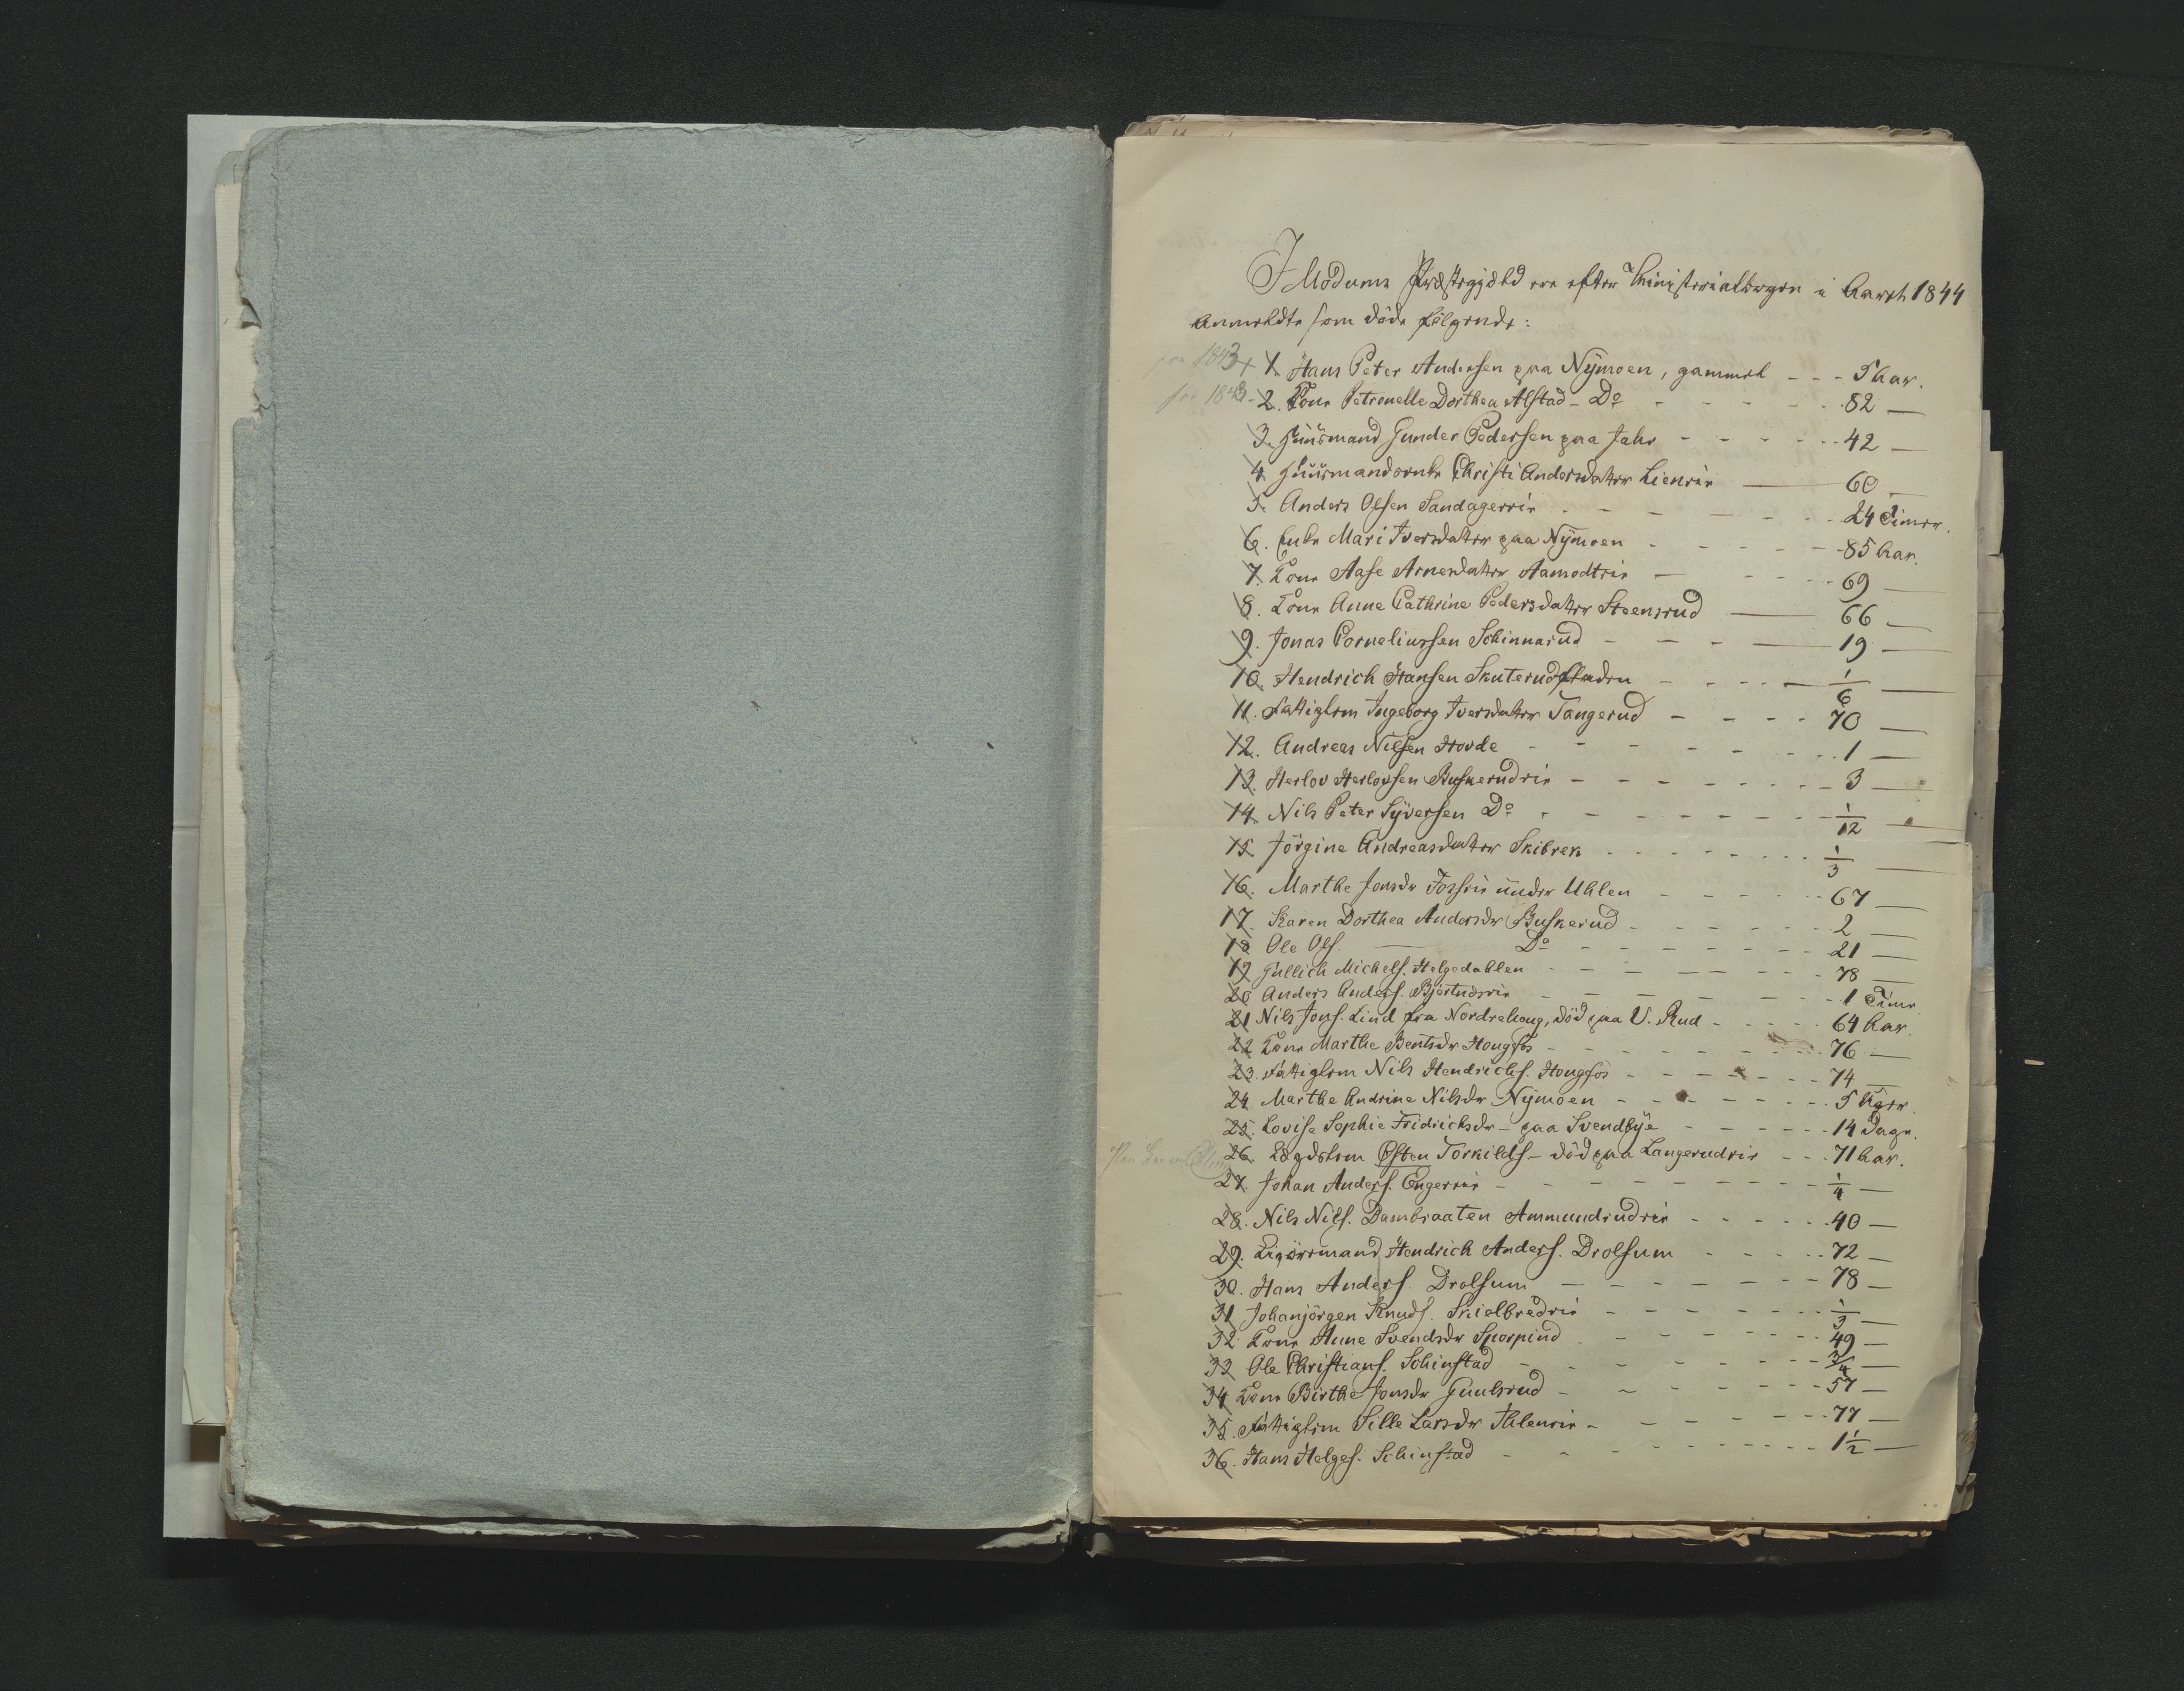 I Modums Præstegjæld ere efter Ministerialbogen i Aaret 1844
anmeldte som døde følgende:
for 1843 + 1. Hans Peter Andersen paa Nÿmoen, gammel - - - 5 Aar.
for 1843 - 2. Kone Petronelle Dorthea Alstad - Do - - - - 82 —
3. Huusmand Gunder Pedersen paa Jahr - - - - 42 —
4. Huusmandsenke Christi Andersdatter Lieneie — 60 —
5. Anders Olsen Sandagereie - - - - 24 Timer.
6. Enke Mari Iversdatter paa Nÿmoen - - - - 85 Aar.
7. Kone Aase Arnesdatter Aamodteie - - - - 69 —
8. Kone Anne Cathrine Pedersdatter Steensrud — 66 —
9. Jonas Corneliussen Schinnarud - - - 19 —
10. Hendrich Hansen Skuterudfladen - - - - 1/6 —
11. Fattiglem Ingeborg Iversdatter Tangerud - - - - 70 —
12. Andreas Nilsen Hovde - - - - 1 —
13. Herlov Herlovsen Buskerudeie - - - - 3 —
14. Nils Peter Sÿversen Do - - - - 1/12 —
15. Jörgine Andreasdatter Skibrek - - - - 1/3 —
16. Marthe Jonsdr Fosseie under Uhlen - - - - 67 —
17. Karen Dorthea Andersdr Buskerud - - - - 2 —
18 Ole Ols. — Do - - - - 21 —
19 Gullich Michels. Helgedahlen - - - - 78 —
20 Anders Anders. Bjertndseie - - - - 1 Time
21 Nils Jons. Lind fra Nordrehoug, død paa V. Rud - - - - 64 Aar.
22 Kone Marthe Bentsdr Hougfos - - - - 76 —
23. Fattiglem Nils Hendrichs. Hougfos - - - - 74 —
24. Marthe Andrine Nilsdr Nÿmoen - - - - 5 Uger.
25. Lovise Sophie Fridrichsdr - paa Svendbÿe - - - - 14 Dage.
26. Lægdslem Østen Torkilds - død paa Langerudeie - - - 71 Aar.
27. Johan Anders. Engereie - - - - 1/4 —
28. Nils Nils. Dambraaten Ammundrudeie - - - - 40 —
29. Ligørsmand Hendrich Anders. Drolsum - - - - 72 —
30. Hans Anders. Drolsum - - - - 78 —
31 Johanjörgen Knuds. Skielbredeie - - - - 1/3 —
32 Kone Anne Svendsdr Sporpind - - - - 49 —
33 Ole Christians. Schinstad - - - - 3/4 —
34 Kone Birthe Jonsdr Guulsrud - - - - 57 —
35. Fattiglem Sille Larsdr Ihleneie - - - - 77 —
36. Hans Helges. Schinstad - - - - 1 1/2 —